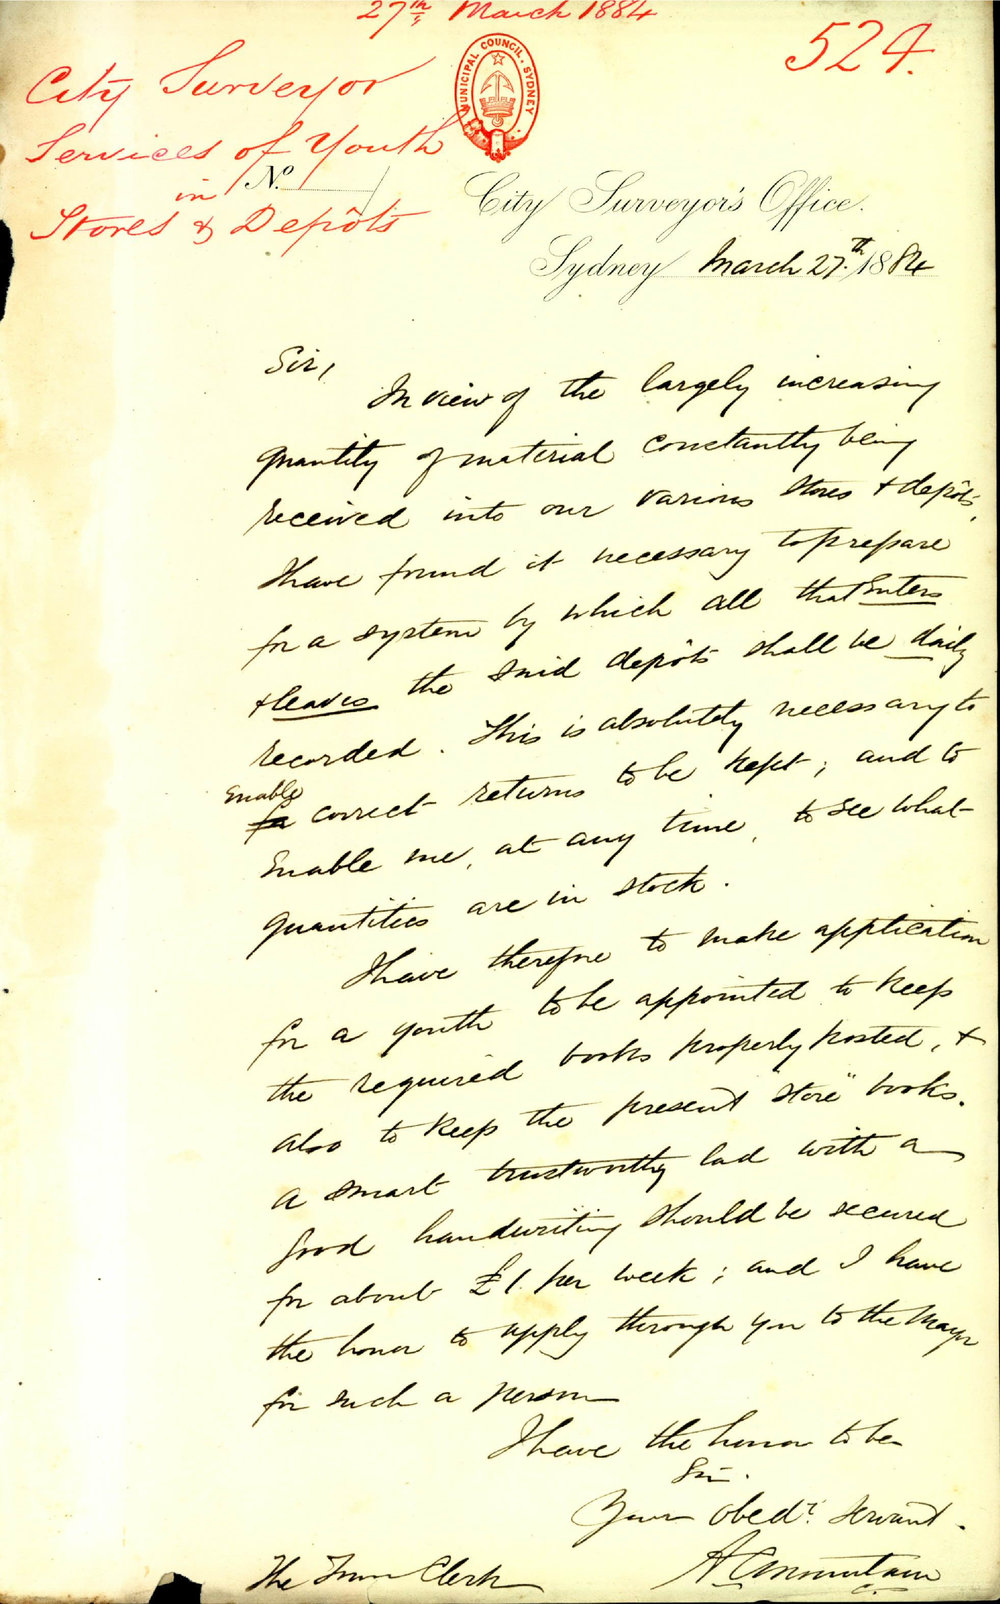 27th March 1884
524.
City Surveyor
Services of Youth
in
Stores & Depôts
MUNICIPAL COUNCIL. SYDNEY
No.
City Surveyor's Office.
Sydney March 27th 1884
Sir,
In view of the largely increasing
quantity of material constantly being
received into our various stores & depôts,
I have found it necessary to prepare
for a system by which all that enters
& leaves the said depôts shall be daily
recorded. This is absolutely necessary to
Enable
for correct returns to be kept; and to
enable me, at any time, to see what
quantities are in stock.
I have therefore to make application
for a youth to be appointed to keep
the required books properly posted, &
also to keep the present "store" books.
A smart trustworthy lad with a
good handwriting should be secured
for about £1. per week; and I have
the honor to apply through you to the Mayor
for such a person
I have the honor to be
Sir.
Your obedt. servant.
A C Mountain
The Town Clerk